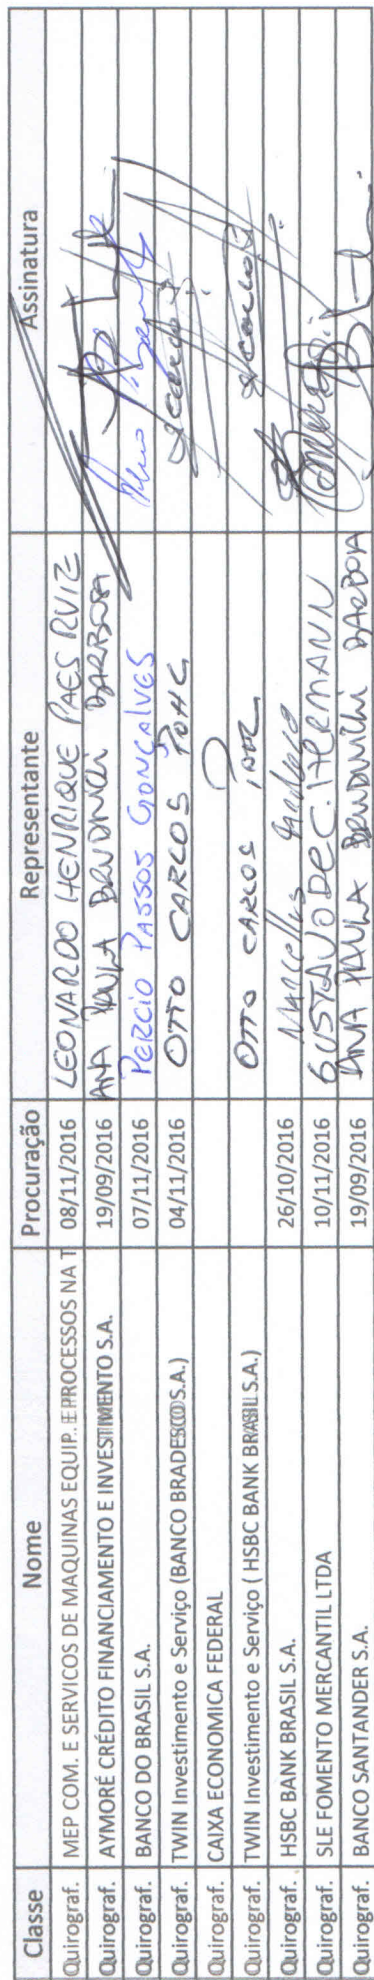 Classe Nome Procuração Representante Assinatura
Quirograf. MEP COM. E SERVICOS DE MAQUINAS EQUIP. E PROCESSOS NA T 08/11/2016 LEONARDO HENRIQUE PAES RUIZ
Quirograf. AYMORÉ CRÉDITO FINANCIAMENTO E INVESTIMENTO S.A. 19/09/2016 ANA PAULA BARBOSA
Quirograf. BANCO DO BRASIL S.A. 07/11/2016 PERCIO PASSOS GONÇALVES
Quirograf. TWIN Investimento e Serviço (BANCO BRADESCO S.A.) 04/11/2016 OTTO CARLOS POHL
Quirograf. CAIXA ECONOMICA FEDERAL
Quirograf. TWIN Investimento e Serviço ( HSBC BANK BRASIL S.A.) OTTO CARLOS POHL
Quirograf. HSBC BANK BRASIL S.A. 26/10/2016 Marcellus
Quirograf. SLE FOMENTO MERCANTIL LTDA 10/11/2016 GUSTAVO DE C. HERMANN
Quirograf. BANCO SANTANDER S.A. 19/09/2016 ANA PAULA BARBOSA